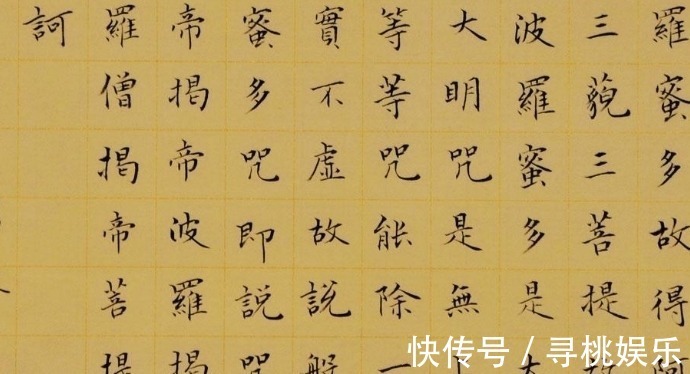 羅蜜多故得阿
三藐三菩提故
波羅蜜多是大
大明咒是無上
等等咒能除一
實不虛故說般
蜜多咒即說咒
帝揭帝波羅揭
羅僧揭帝菩提
訶
快传号 / 寻桃娱乐